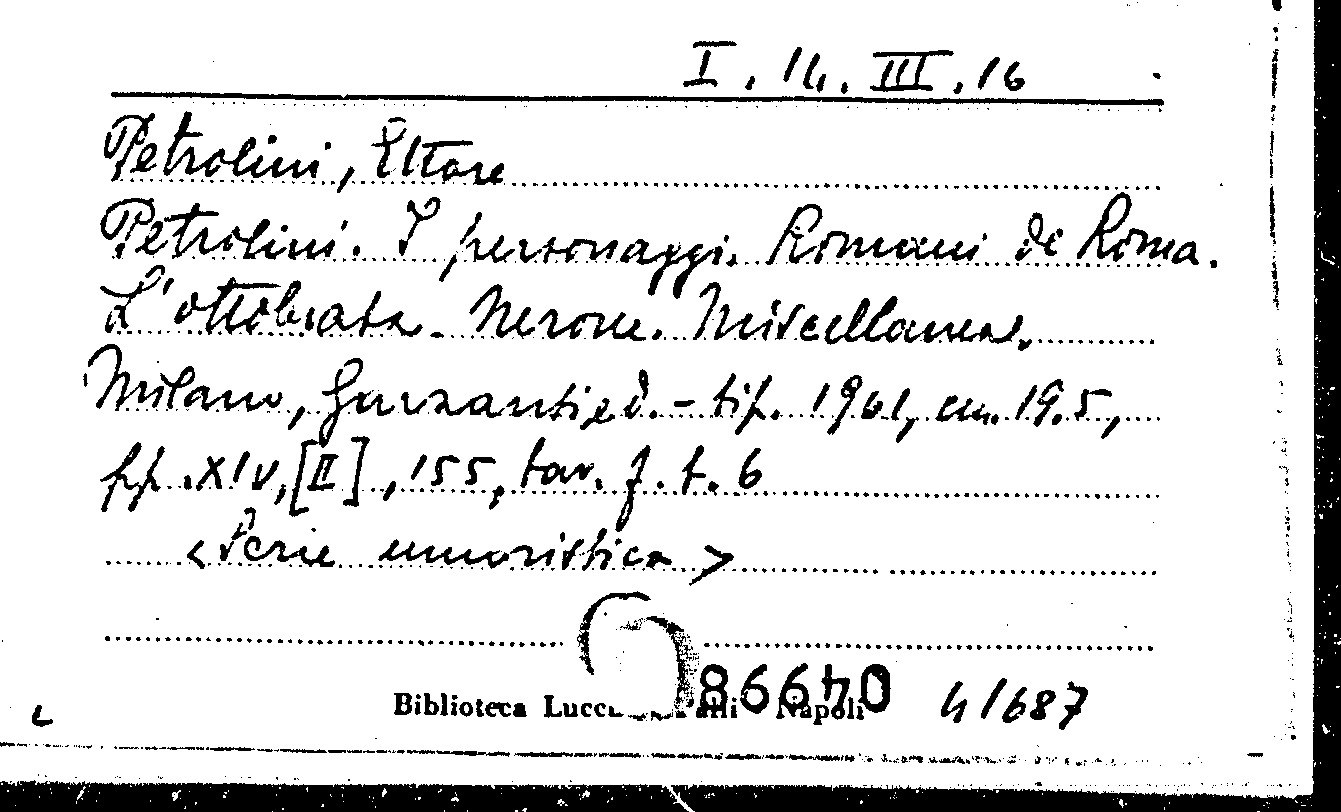 I. 14. III. 16
Petrolini, Ettore
Petrolini. I personaggi. Romani de Roma.
L'ottobrata. Nerone. Miscellanea.
Milano, Garzanti ed. - tip. 1961, cm. 19.5,
pp. XIV, [II], 155, tav. f. t. 6
<Serie umoristica>
Biblioteca Palli Napoli 4/687